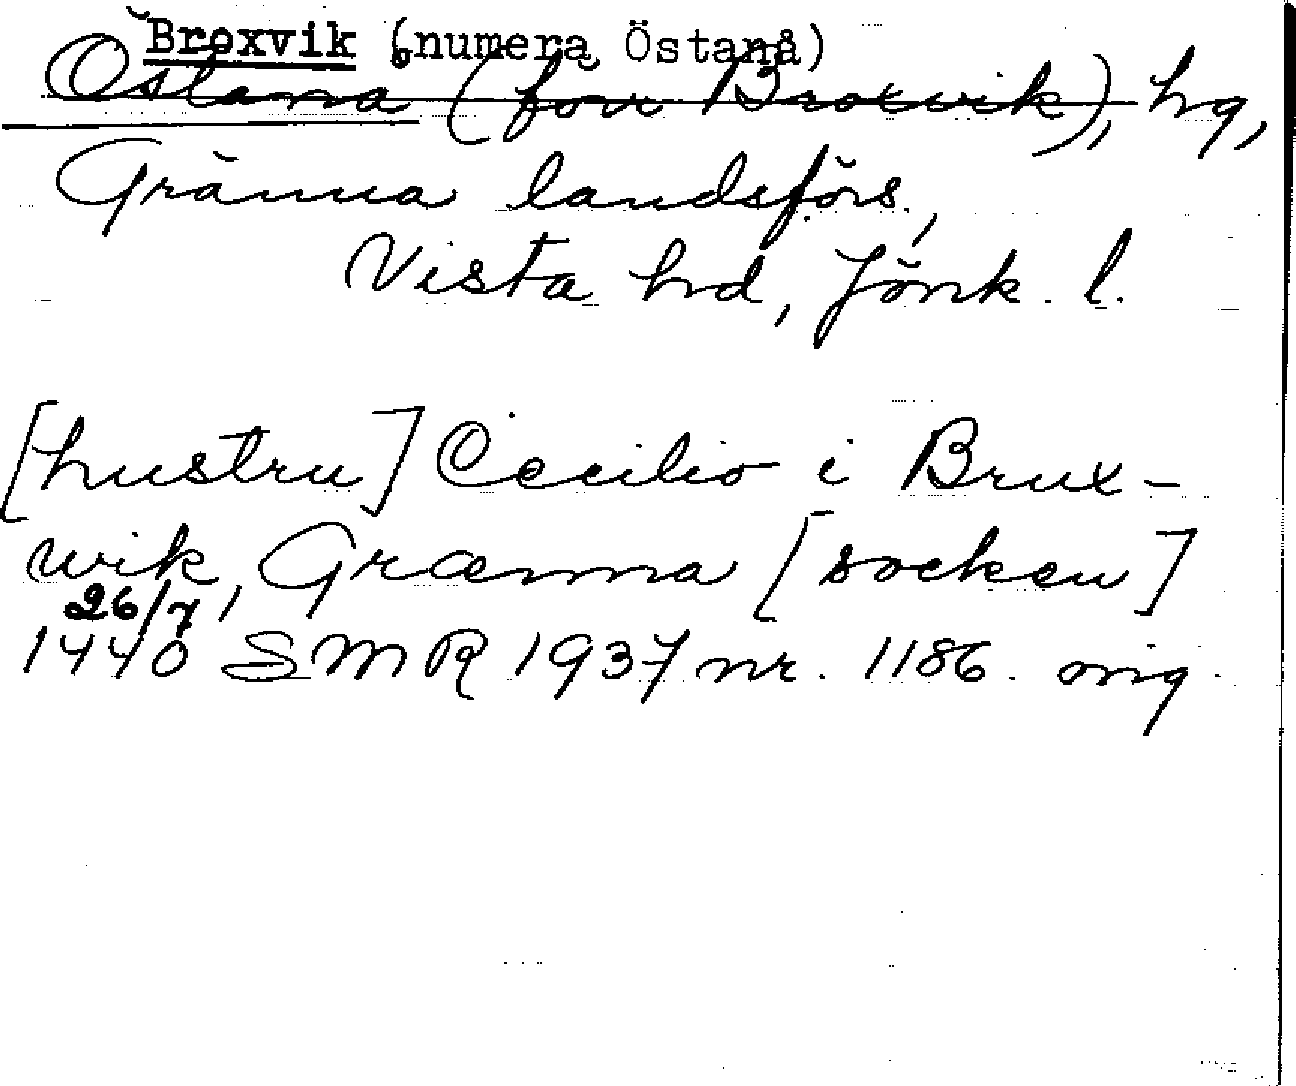 Broxvik (numera Östanå)
Östana (förr Broxvik), hg,
Gränna landsförs.,
Vista hd, Jönk. l.
[hustru] Cecilio i Brux-
wik, Grænna [socken]
26/7
1440 SMR 1937 nr. 1186 orig.